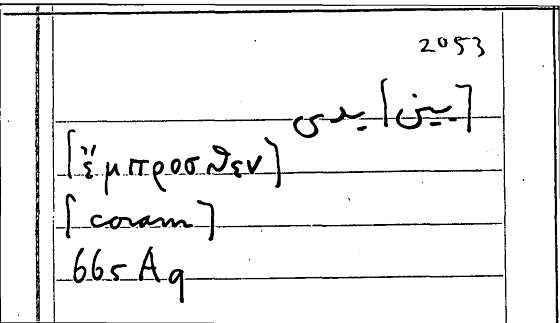 2053
[بين] يدى
[ἔμπροσθεν]
[coram]
665 Aq